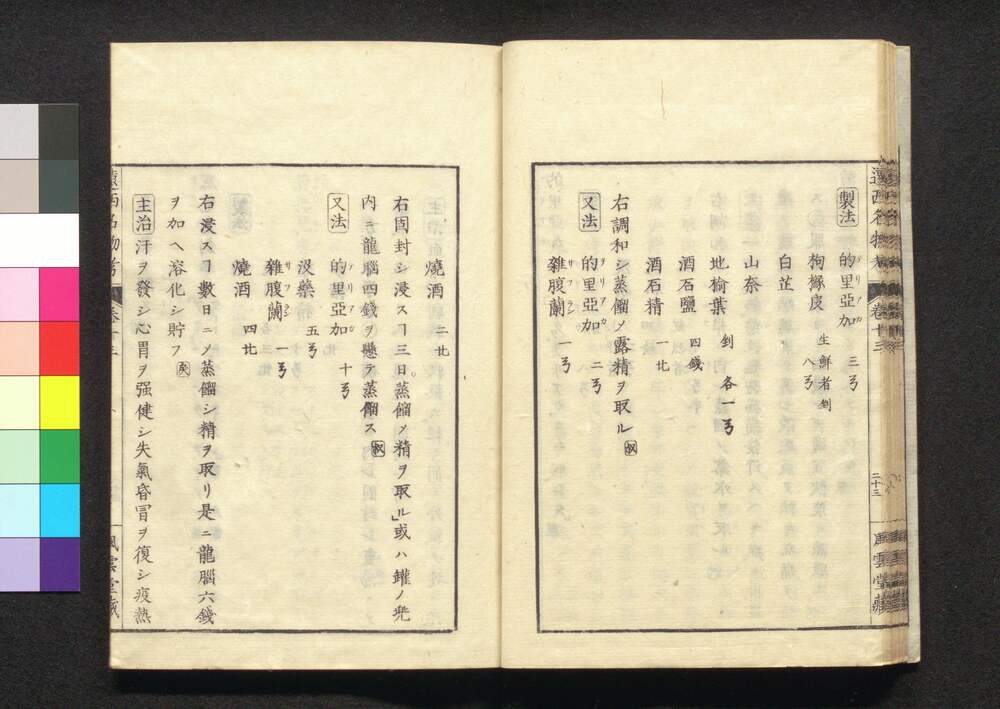 遠西名物考
卷十三
二十三
風雲堂藏
製法 的里亞加 三
枸櫞皮 生鮮者剉 八
白芷
山奈
地榆葉 剉 各一
酒石鹽 四錢
酒石精 一
右調和シ蒸餾ノ露精ヲ取ル
又法 的里亞加 二
雜腹蘭 一
燒酒 二
右固封シ浸スヿ三日。蒸餾ノ精ヲ取ル」或ハ罐ノ兠
內ニ龍腦四錢ヲ懸テ蒸餾ス
又法 的里亞加 十
沒藥 五
雜腹蘭 一
燒酒 四
右浸スヿ數日ニノ蒸餾シ精ヲ取リ是ニ龍腦六錢
ヲ加ヘ溶化シ貯フ
主治 汗ヲ發シ心胃ヲ强健シ失氣昏冒ヲ復シ疫熱
遠西名物考
卷十三
風雲堂藏